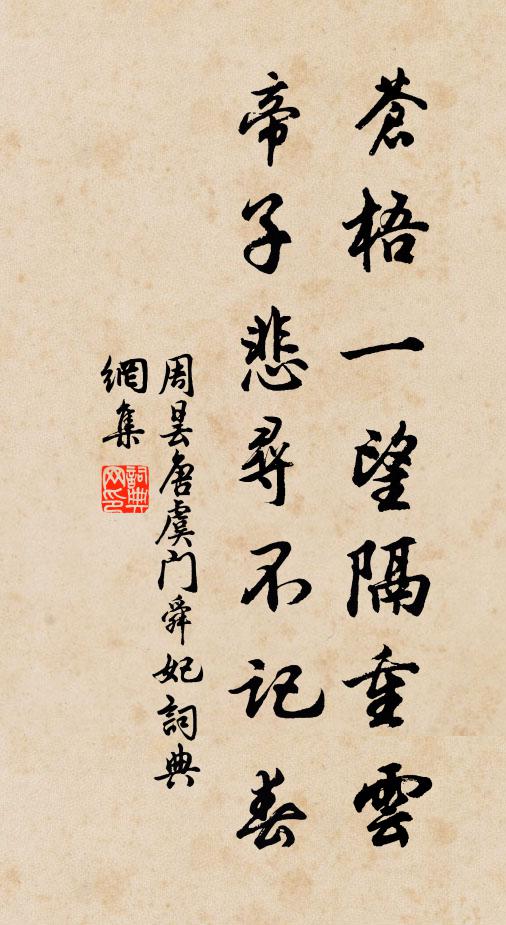 蒼梧一望隔重雲
帝子悲尋不記春
周曇唐虞門舜妃詞典
網集
詞典
网印